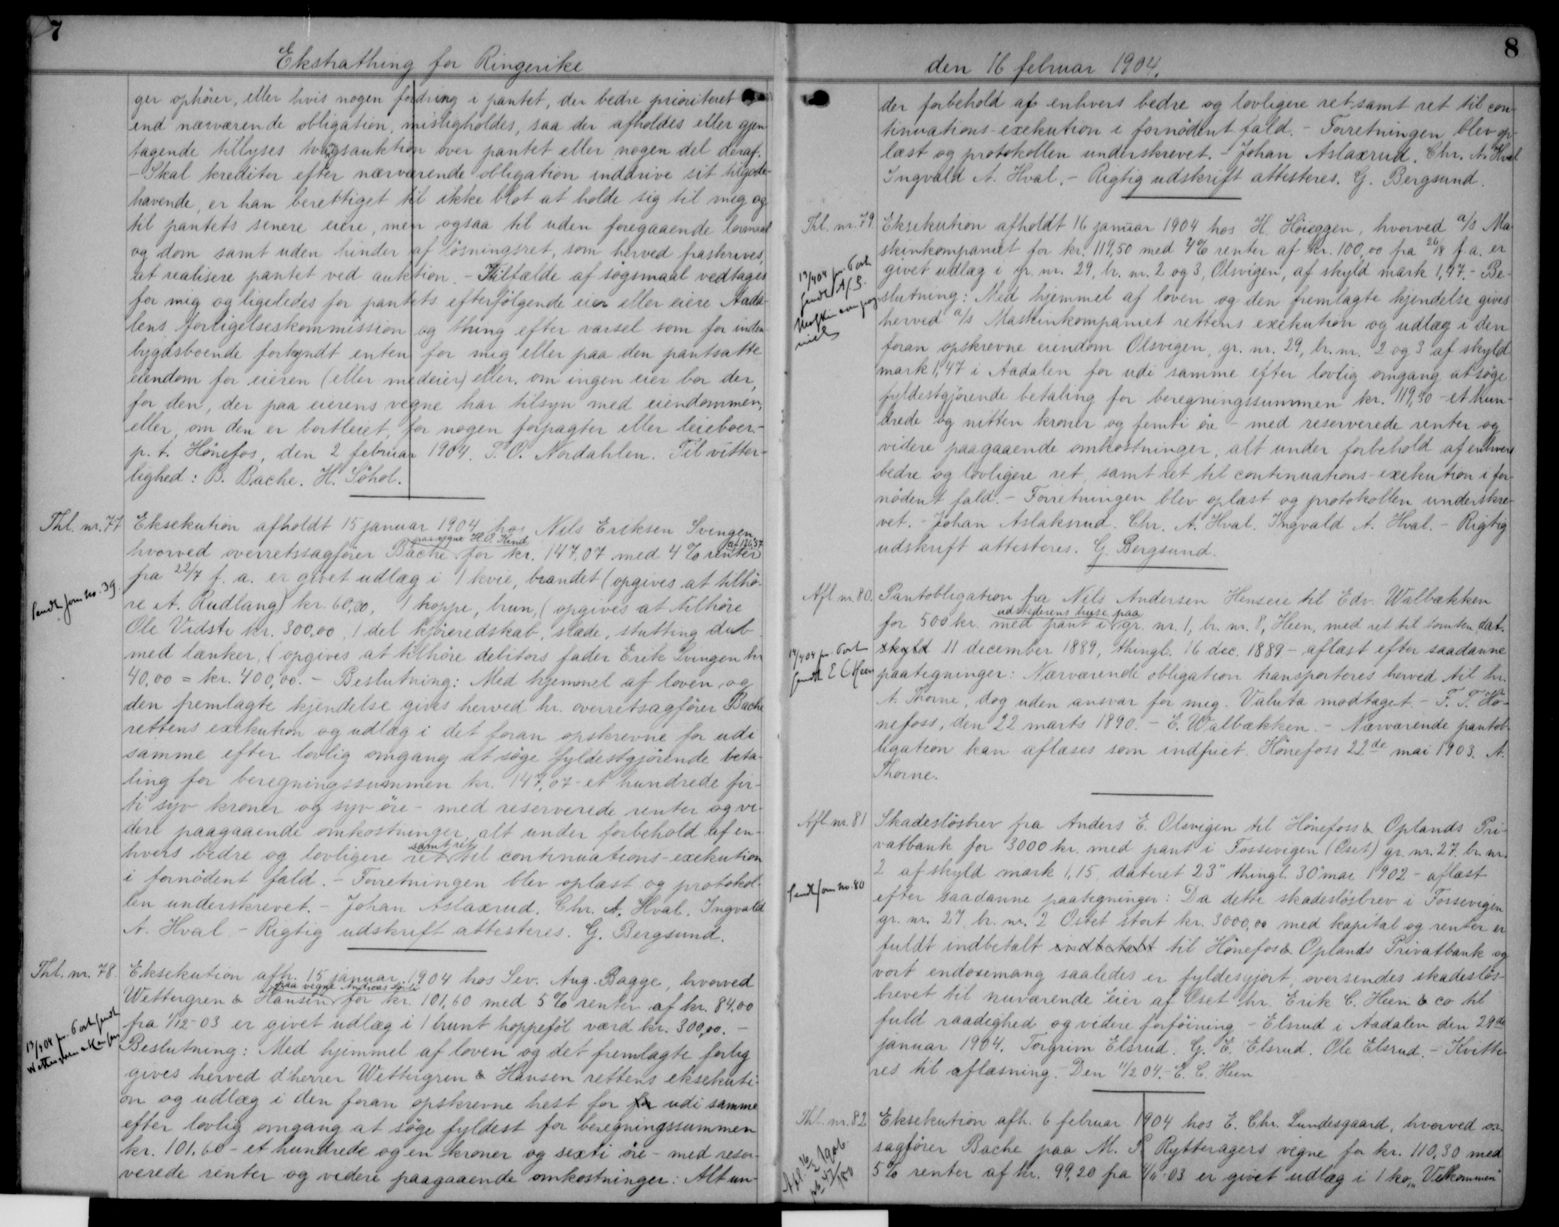 7
Ekstrathing for Ringerike
ger ophører, eller hvis nogen fordring i pantet, der bedre prioriteret
end nærværende obligation, misligholdes, saa der afholdes eller gjen-
tagende tillyses tvangsauktion over pantet eller nogen del deraf.
- Skal kreditor efter nærværende obligation inddrive sit tilgode-
havende, er han berettiget til ikke blot at holde sig til mig og
til pantets senere eiere, men ogsaa til uden foregaaende lovmaal
og dom samt uden hinder af løsningsret, som herved fraskrives,
at realisere pantet ved auktion. - I tilfælde af søgsmaal vedtages
for mig og ligeledes for pantets efterfølgende eier eller eiere Aada-
lens forligelseskommission og thing efter varsel som for inden-
bygdsboende forkyndt enten for mig eller paa den pantsatte
eiendom for eieren (eller medeier) eller, om ingen eier bor der,
for den, der paa eierens vegne har tilsyn med eiendommen,
eller, om den er bortleiet, for nogen forpagter eller leieboer.-
p. t. Hønefos, den 2 februar 1904. P. O. Nordahlen. Til vitter-
lighed: B. Bache. H. Söhol.
Thl. nr. 77
Eksekution afholdt 15 januar 1904 hos Nils Eriksen Svingen,
paa vegne H. O. Hund
hvorved overretssagfører Bache for kr. 147,07 med 4 % renter
fra 22/7 f. a. er givet udlæg i 1 kvie, brandet (opgives at tilhø-
Sendt som no. 39
re A. Rudlang) kr. 60,00, 1 hoppe, brun, (opgives at tilhöre
Ole Vidste kr. 300,00, 1 del kjøreredskab, slæde, stutting dub.
med lænker, (opgives at tilhöre debitors fader Erik Svingen kr.
40,00 = kr. 400,00. - Beslutning: Med hjemmel af loven og
den fremlagte kjendelse gives herved hr. overretsagfører Bache
rettens exekution og udlæg i det foran opskrevne for udi
samme efter lovlig omgang at søge fyldestgjørende beta-
ling for beregningssummen kr. 147,07 - et hundrede fir-
ti syv kroner og syv øre - med reserverede renter og vi-
dere paagaaende omkostninger, alt under forbehold af en-
samt ret
hvers bedre og lovligere ret til continuations-exekution
i fornødent fald. - Forretningen blev oplæst og protokol-
len underskrevet. - Johan Aslaxrud. Chr. A. Hval. Ingvald
A. Hval. - Rigtig udskrift attesteres. G. Bergsund.
Thl. nr. 78
Eksekution afh. 15 januar 1904 hos Sev. Aug. Bagge, hvorved
paa vegne Andreas
Wettergren & Hansen for kr. 101,60 med 5 % renter af kr. 84,00
fra 1/12-03 er givet udlæg i 1 brunt hoppeføl værd kr. 300,00. -
Beslutning: Med hjemmel af loven og det fremlagte forlig
gives herved d'herrer Wettergren & Hansen rettens eksekuti-
on og udlæg i den foran opskrevne hest for for udi samme
efter lovlig omgang at søge fyldest for beregningssummen
kr. 101,60 - et hundrede og en kroner og sexti øre - med reser-
verede renter og videre paagaaende omkostninger. Alt un-
8
den 16 februar 1904.
der forbehold af enhvers bedre og lovligere ret samt ret til con-
tinuations-exekution i fornødent fald. - Forretningen blev op-
læst og protokollen underskrevet. - Johan Aslaxrud. Chr. A. Hval
Ingvald A. Hval. - Rigtig udskrift attesteres. G. Bergsund.
Thl. nr. 79
Eksekution afholdt 16 januar 1904 hos H. Höieggen, hvorved a/s Ma-
skinkompaniet for kr. 119,50 med 4 % renter af kr. 100,00 fra 26/8 f. a. er
givet udlæg i gr. nr. 29, br. nr. 2 og 3, Olsvigen, af skyld mark 1,47. - Be-
slutning: Med hjemmel af loven og den fremlagte kjendelse gives
herved a/s Maskinkompaniet rettens exekution og udlæg i den
foran opskrevne eiendom Olsvigen, gr. nr. 29, br. nr. 2 og 3 af skyld
mark 1,47 i Aadalen for udi samme efter lovlig omgang at søge
fyldestgjørende betaling for beregningssummen kr. 119,50 - et hun-
drede og nitten kroner og femti øre - med reserverede renter og
videre paagaaende omkostninger, alt under forbehold af enhvers
bedre og lovligere ret, samt ret til continuations-exekution i for-
nødent fald. - Forretningen blev oplæst og protokollen underskre-
vet. - Johan Aslaksrud. Chr. A. Hval. Ingvald A. Hval. - Rigtig
udskrift attesteres. G. Bergsund.
Afl nr. 80.
Pantobligation fra Nils Andersen Henseie til Edv. Walbækken
for 500 kr. med pant i gr. nr. 1, br. nr. 8, Heen, med ret til tomten, dat.
skyld 11 december 1889, thingl. 16 dec. 1889 - aflæst efter saadanne
paategninger: Nærværende obligation transporteres herved til hr.
A. Thorne, dog uden ansvar for mig. Valuta modtaget. - T. T. Hø-
nefoss, den 22 marts 1890. - E. Walbækken. - Nærværende pantob-
ligation kan aflæses som indfriet. Hönefoss 22de mai 1903. A.
Thorne.
Afl nr. 81
Skadesløsbrev fra Anders E. Olsvigen til Hönefoss & Oplands Pri-
vatbank for 3000 kr. med pant i Fossevigen (Oset) gr. nr. 27. br. nr.
2 af skyld mark 1,15 dateret 23" thingl. 30" mai 1902 - aflæst
Sendt som no. 80
efter saadanne paategninger: Da dette skadesløsbrev i Fossevigen
gr. nr. 27 br. nr. 2 Oset stort kr. 3000,00 med kapital og renter er
fuldt indbetalt indbetalt til Hönefos & Oplands Privatbank og
vort endosemang saaledes er fyldesgjort, oversendes skadesløs-
brevet til nuværende Eier af Oset hr. Erik C. Heen & co til
fuld raadighed og videre forføining - Elsrud i Aadalen den 29de
januar 1904. Torgrim Elsrud. G. E. Elsrud. Ole Elsrud. - Kvitte-
res til aflæsning. Den 11/2 04. - E. C. Heen
Thl. nr. 82
Eksekution afh. 6 februar 1904 hos E. Chr. Lundesgaard, hvorved o.r.
sagfører Bache paa M. P. Rytteragers vegne for kr. 110,30 med
5 % renter af kr. 99,20 fra 1/11-03 er givet udlæg i 1 ko, "Velkommen"